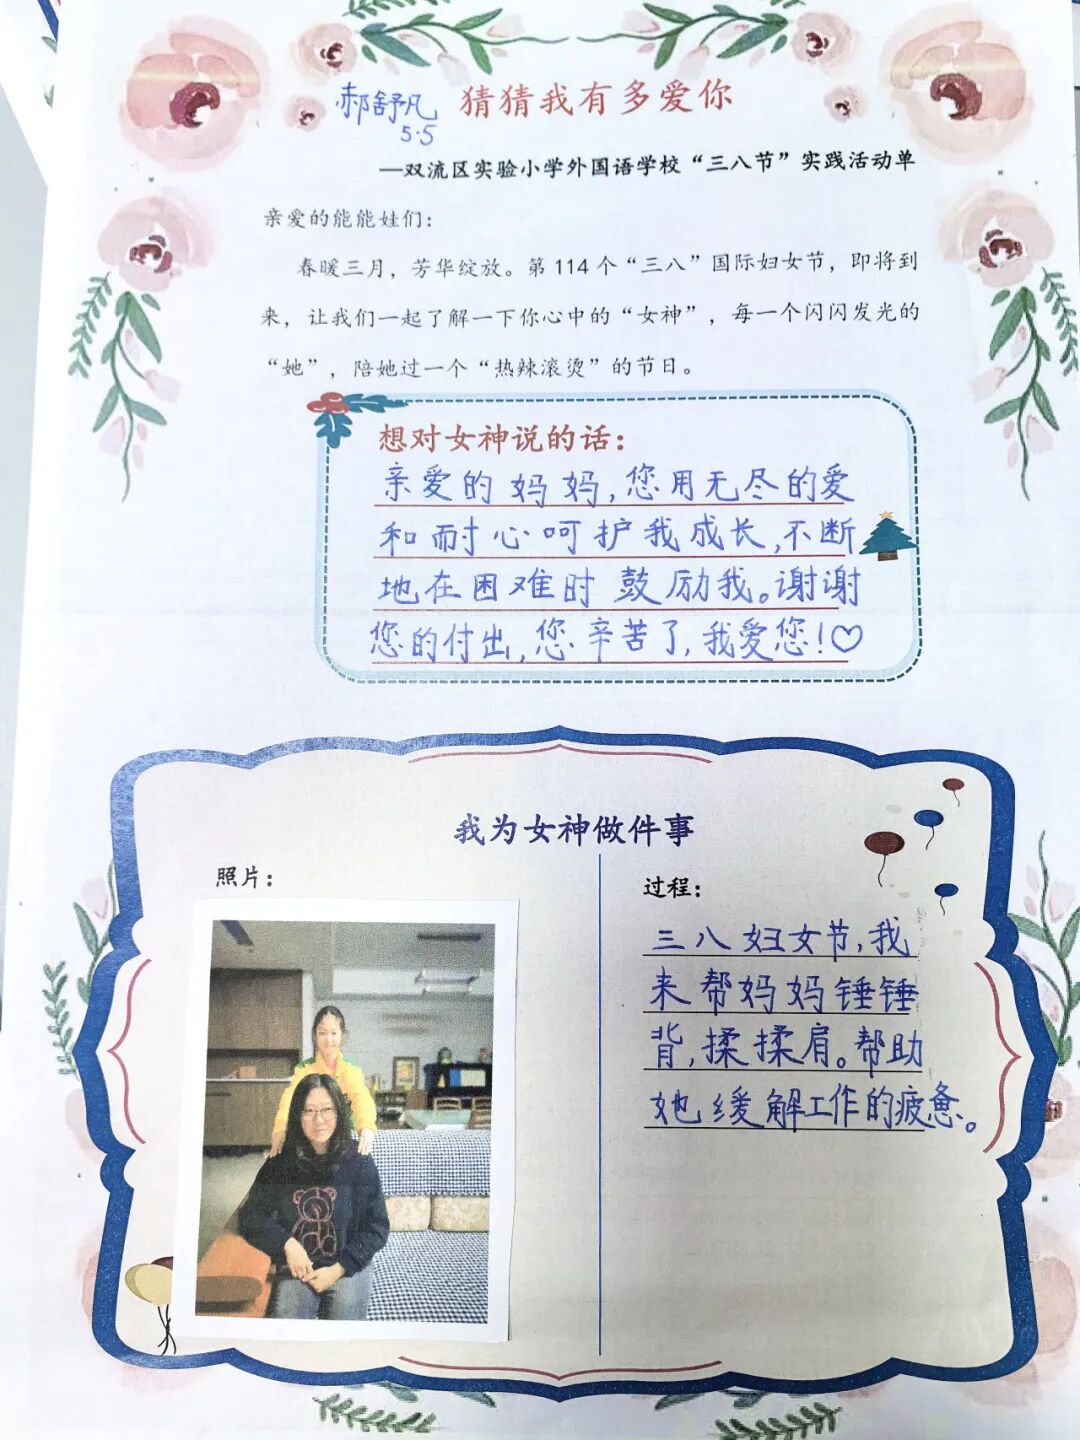 郝舒凡 猜猜我有多爱你
5.5
—双流区实验小学外国语学校“三八节”实践活动单
亲爱的能能娃们：
春暖三月，芳华绽放。第 114 个“三八”国际妇女节，即将到
来，让我们一起了解一下你心中的“女神”，每一个闪闪发光的
“她”，陪她过一个“热辣滚烫”的节日。
想对女神说的话：
亲爱的妈妈,您用无尽的爱
和耐心呵护我成长,不断
地在困难时鼓励我。谢谢
您的付出,您辛苦了,我爱您!♡
我为女神做件事
照片：
过程：
三八妇女节,我
来帮妈妈锤锤
背,揉揉肩。帮助
她缓解工作的疲惫。